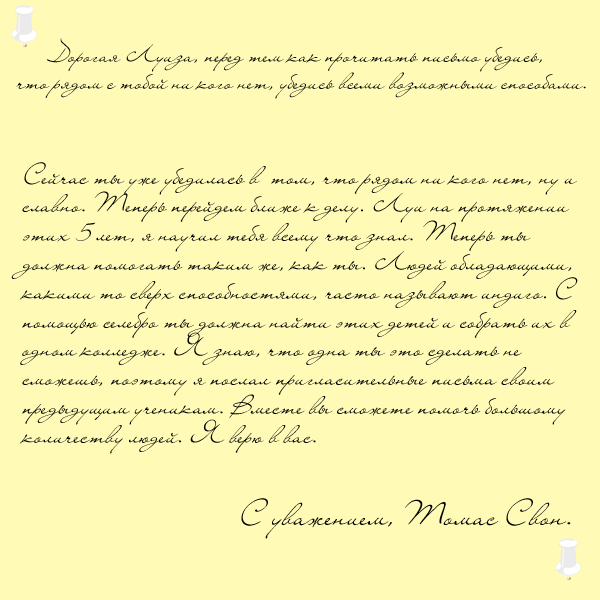 Дорогая Луиза, перед тем как прочитать письмо убедись,
что рядом с тобой ни кого нет, убедись всеми возможными способами.
Сейчас ты уже убедилась в том, что рядом ни кого нет, ну и
славно. Теперь перейдем ближе к делу. Луи на протяжении
этих 5 лет, я научил тебя всему что знал. Теперь ты
должна помогать таким же, как ты. Людей обладающими,
какими то сверх способностями, часто называют индиго. С
помощью селебро ты должна найти этих детей и собрать их в
одном колледже. Я знаю, что одна ты это сделать не
сможешь, поэтому я послал пригласительные письма своим
предыдущим ученикам. Вместе вы сможете помочь большому
количеству людей. Я верю в вас.
С уважением, Томас Свон.